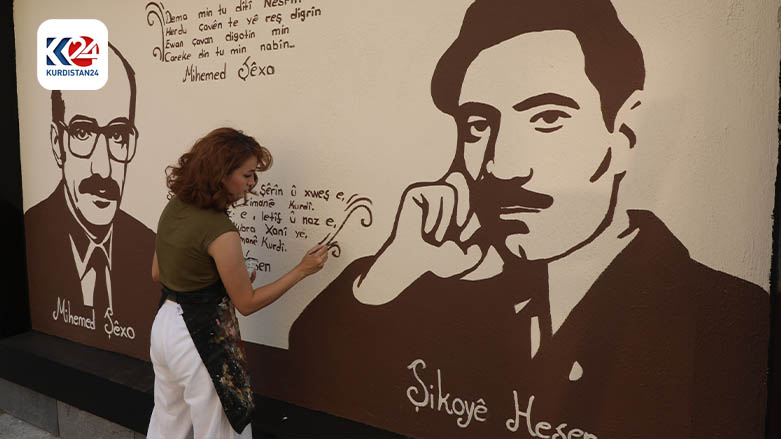 K24
KURDISTAN24
Dema min tu dîtî Nesrîn
Herdu çavên te yê reş digrîn
Ewan çavan digotin min
Careke din tu min nabîn...
Mihemed Şêxo
Şêrîn û xweş e,
Zimanê Kurdî.
e, letîf û naz e,
Xanî ye,
Kurdî.
Mihemed Şêxo
Şikoyê Hesen